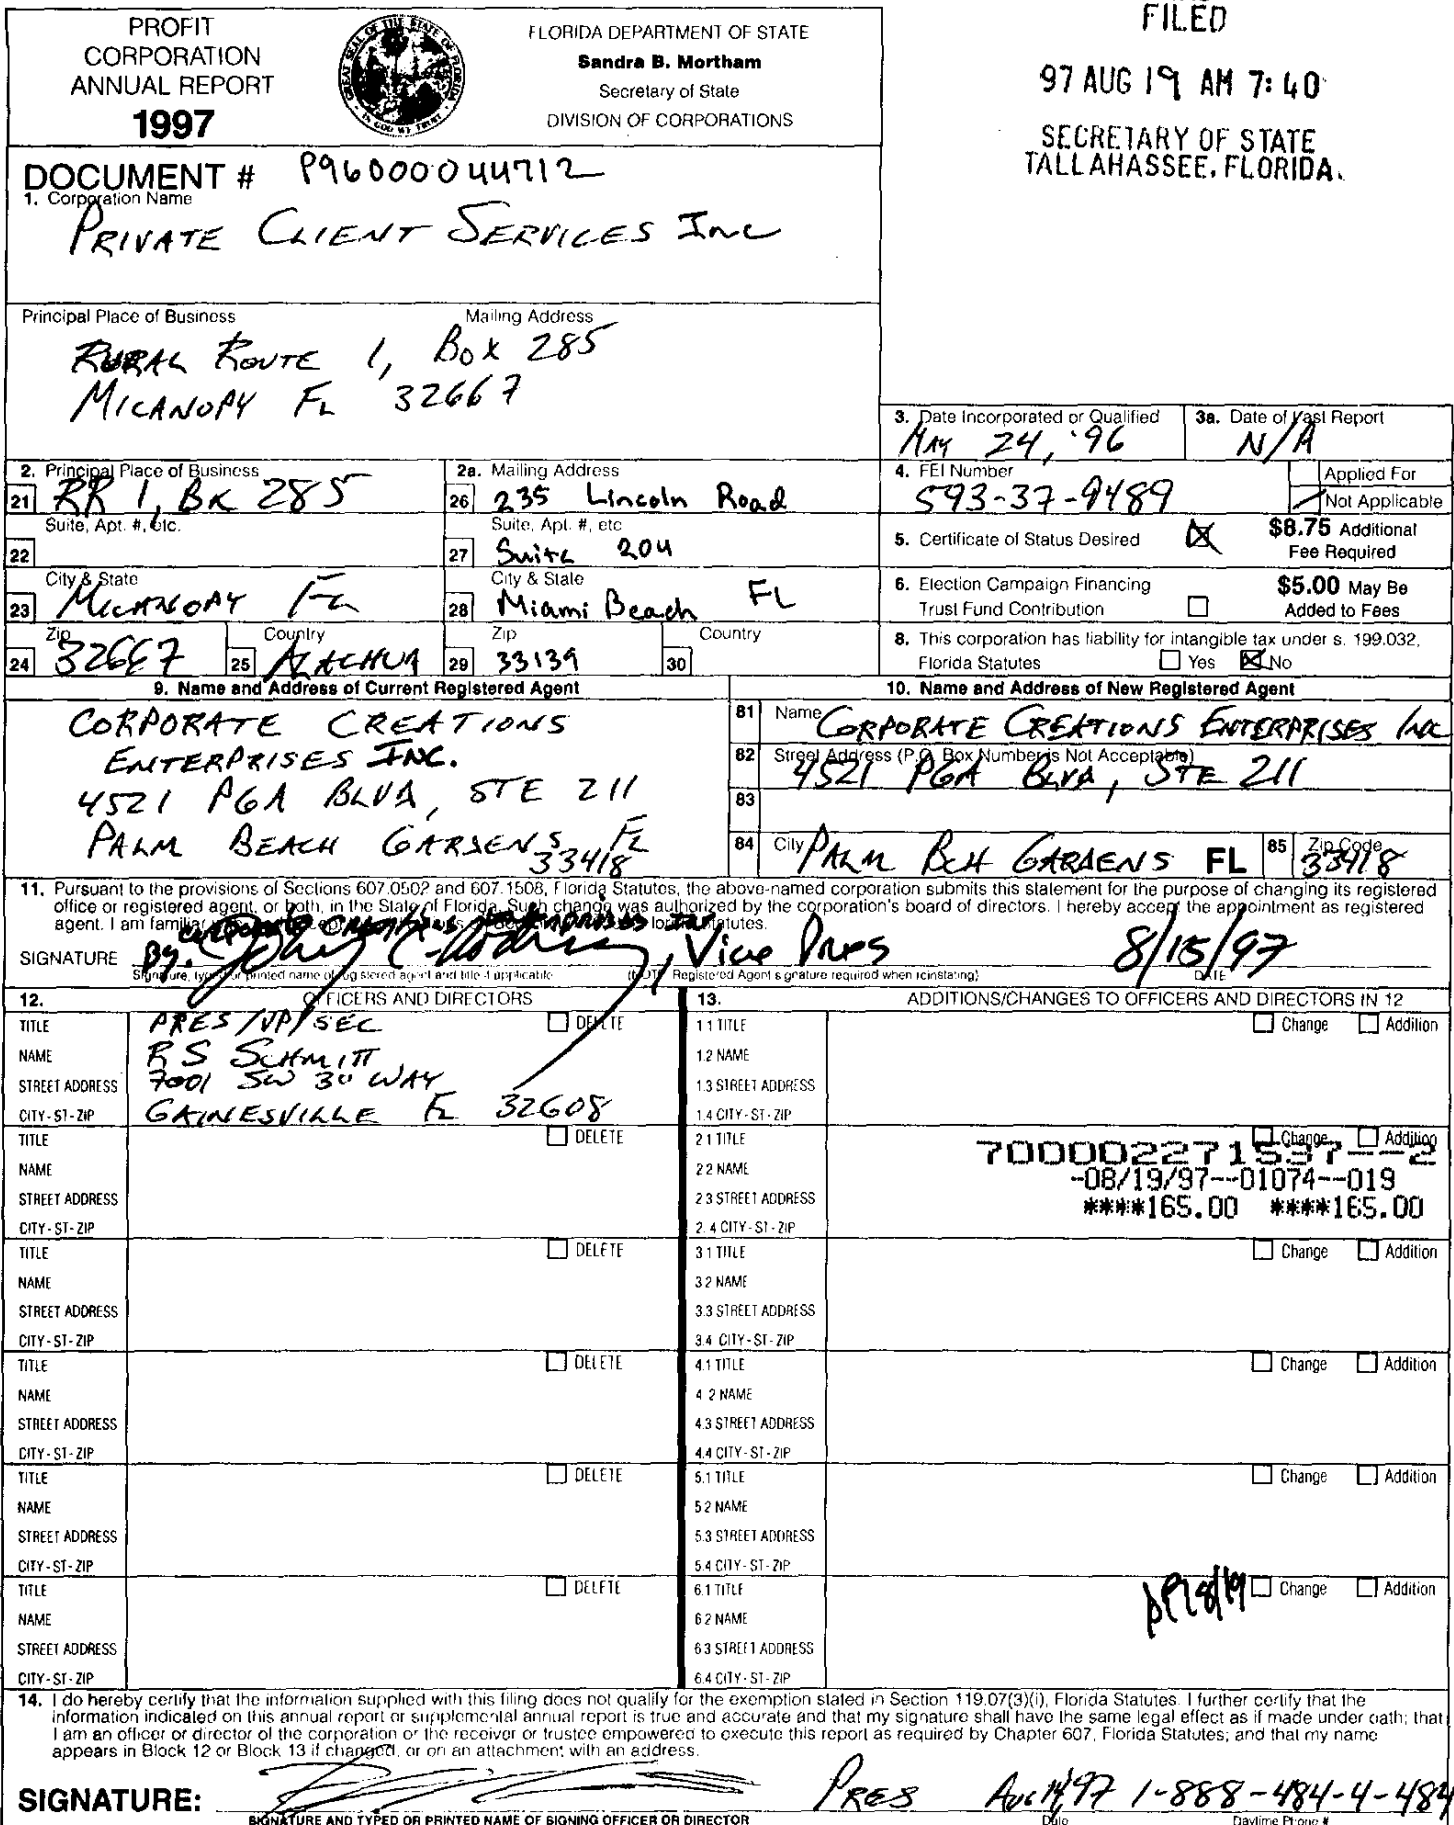 PROFIT
CORPORATION
ANNUAL REPORT
1997
FLORIDA DEPARTMENT OF STATE
Sandra B. Mortham
Secretary of State
DIVISION OF CORPORATIONS
FILED
97 AUG 19 AM 7:40
SECRETARY OF STATE
TALLAHASSEE, FLORIDA.
DOCUMENT # P96000044712
1. Corporation Name
PRIVATE CLIENT SERVICES INC
Principal Place of Business Mailing Address
RURAL ROUTE 1, BOX 285
MICANOPY FL 32667
3. Date Incorporated or Qualified
MAY 24, '96
3a. Date of Last Report
N/A
2. Principal Place of Business
21 RR 1, BX 285
Suite, Apt. #, etc.
22
City & State
23 MICANOPY FL
Zip
24 32667
Country
25 ALACHUA
2a. Mailing Address
26 235 Lincoln Road
Suite, Apt. #, etc
27 Suite 204
City & State
28 Miami Beach FL
Zip
29 33139
Country
30
4. FEI Number
593-37-9489
Applied For
Not Applicable
5. Certificate of Status Desired
$8.75 Additional
Fee Required
6. Election Campaign Financing
Trust Fund Contribution
$5.00 May Be
Added to Fees
8. This corporation has liability for intangible tax under s. 199.032,
Florida Statutes Yes No
9. Name and Address of Current Registered Agent
CORPORATE CREATIONS
ENTERPRISES INC.
4521 PGA BLVD, STE 211
PALM BEACH GARDENS FL
33418
10. Name and Address of New Registered Agent
81 Name CORPORATE CREATIONS ENTERPRISES INC
82 Street Address (P.O. Box Number is Not Acceptable)
4521 PGA BLVD, STE 211
83
84 City PALM BCH GARDENS FL 85 Zip Code
33418
11. Pursuant to the provisions of Sections 607.0502 and 607.1508, Florida Statutes, the above-named corporation submits this statement for the purpose of changing its registered
office or registered agent, or both, in the State of Florida. Such change was authorized by the corporation's board of directors. I hereby accept the appointment as registered
agent. I am familiar Statutes.
Corporate Creations Enterprises Inc
SIGNATURE By: , Vice Pres 8/15/97
Signature, typed or printed name of registered agent and title if applicable (NOTE Registered Agent signature required when reinstating) DATE
12. OFFICERS AND DIRECTORS
TITLE PRES/VP/SEC DELETE
NAME RS SCHMITT
STREET ADDRESS 7001 SW 30 WAY
CITY-ST-ZIP GAINESVILLE FL 32608
TITLE DELETE
NAME
STREET ADDRESS
CITY-ST-ZIP
TITLE DELETE
NAME
STREET ADDRESS
CITY-ST-ZIP
TITLE DELETE
NAME
STREET ADDRESS
CITY-ST-ZIP
TITLE DELETE
NAME
STREET ADDRESS
CITY-ST-ZIP
TITLE DELETE
NAME
STREET ADDRESS
CITY-ST-ZIP
13. ADDITIONS/CHANGES TO OFFICERS AND DIRECTORS IN 12
1.1 TITLE Change Addition
1.2 NAME
1.3 STREET ADDRESS
1.4 CITY-ST-ZIP
2.1 TITLE Change Addition
700002271537--2
2.2 NAME
-08/19/97--01074--019
2.3 STREET ADDRESS
****165.00 ****165.00
2.4 CITY-ST-ZIP
3.1 TITLE Change Addition
3.2 NAME
3.3 STREET ADDRESS
3.4 CITY-ST-ZIP
4.1 TITLE Change Addition
4.2 NAME
4.3 STREET ADDRESS
4.4 CITY-ST-ZIP
5.1 TITLE Change Addition
5.2 NAME
5.3 STREET ADDRESS
5.4 CITY-ST-ZIP
6.1 TITLE 8/19 Change Addition
6.2 NAME
6.3 STREET ADDRESS
6.4 CITY-ST-ZIP
14. I do hereby certify that the information supplied with this filing does not qualify for the exemption stated in Section 119.07(3)(i), Florida Statutes. I further certify that the
information indicated on this annual report or supplemental annual report is true and accurate and that my signature shall have the same legal effect as if made under oath; that
I am an officer or director of the corporation or the receiver or trustee empowered to execute this report as required by Chapter 607, Florida Statutes; and that my name
appears in Block 12 or Block 13 if changed, or on an attachment with an address.
SIGNATURE: PRES Aug 14, 97 1-888-484-4-484
SIGNATURE AND TYPED OR PRINTED NAME OF SIGNING OFFICER OR DIRECTOR Date Daytime Phone #